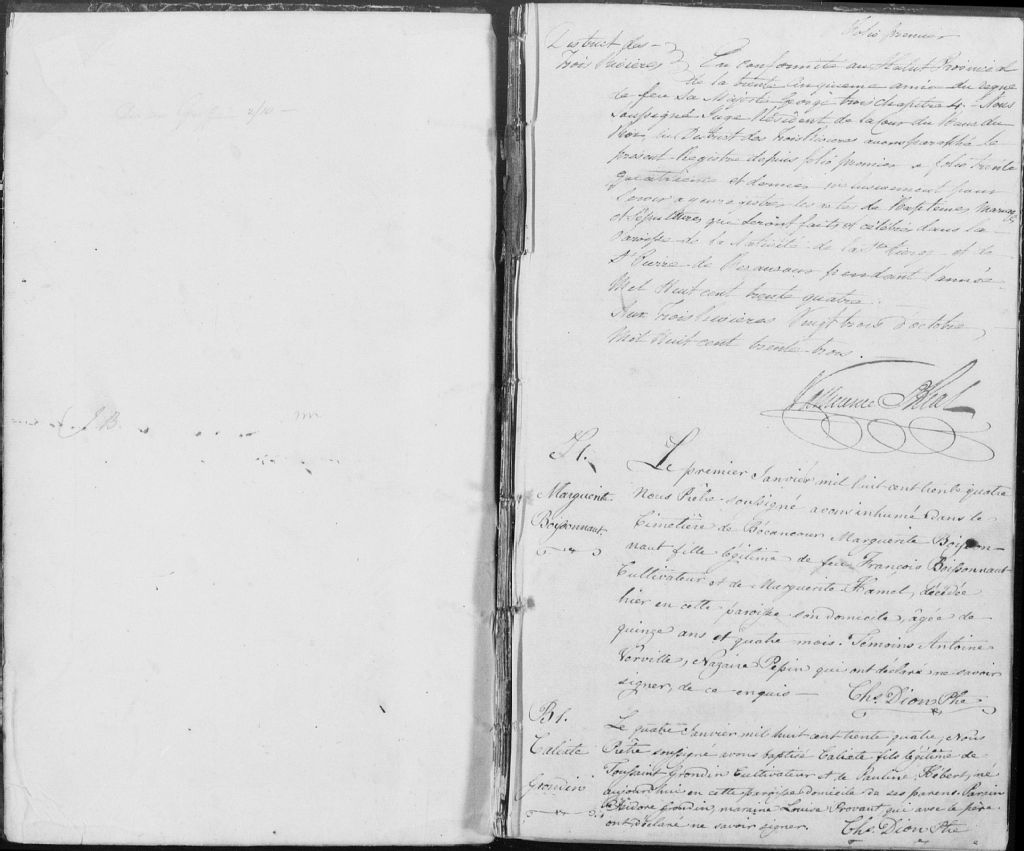 Folio premier
District des
Trois Rivieres } En conformité au Statut Provincial
de la trente cinquieme année du regne
de feu Sa Majesté George trois chapitre 4. Nous
Soussigné Juge Résident de la Cour du Banc du
Roi, du District des Trois Rivieres avons paraphé le
présent Registre depuis folio premier a folio trente
quatrieme et dernier inclusivement pour
servir a y enregistrer les actes de Baptêmes Mariages
et Sépultures qui seront faits et célébrés dans la
Paroisse de la Nativité de la Ste Vierge et de
St Pierre de Becancour pendant l'année
Mil Huit cent trente quatre.
Aux Trois Rivieres Vingt trois d'octobre
Mil Huit cent trente trois.
S 1.
Marguerite
Boissonnaut.
Le premier Janvier mil huit cent trente quatre
Nous Prêtre soussigné avons inhumé dans le
Cimetière de Bécancour Marguerite Boisson-
naut fille légitime de feu François Boissonnault
Cultivateur et de Marguerite Hamel, décédée
hier en cette paroisse son domicile, âgée de
quinze ans et quatre mois. Témoins Antoine
Norville, Nazaire Pepin qui ont déclaré ne savoir
signer, de ce enquis — Chs. Dion Ptre
B 1.
Calixte
Grondin
Le quatre Janvier mil huit cent trente quatre, Nous
Prêtre soussigné avons baptisé Calixte fils légitime de
Toussaint Grondin Cultivateur et de Pauline Hébert, né
aujourd'hui en cette paroisse domicile de ses parens. Parain
Isidore Grondin, maraine Louise Provant qui avec le père
ont déclaré ne savoir signer. Chs. Dion Ptre